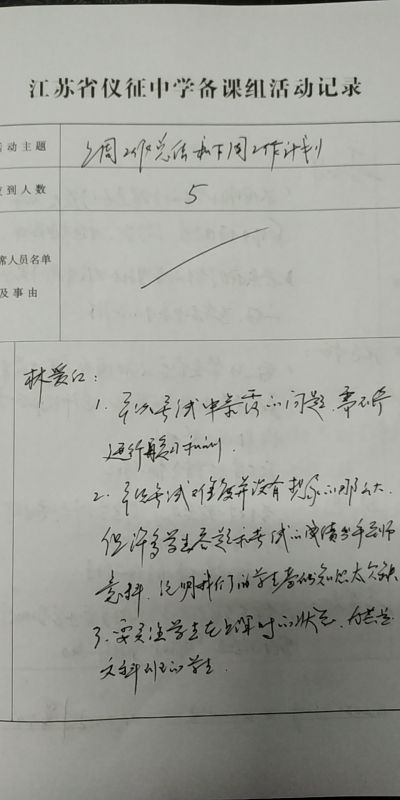 江苏省仪征中学备课组活动记录
活动主题 上周工作总结和下周工作计划
到人数 5
席人员名单
及事由
林爱红:
1. 考试中暴露的问题,需不停
进行复习和
2. 考试难度并没有想象的那么大
但许多学生答题和考试的成绩出乎老师
意料,说明我们的学生基础知识太欠缺
3. 要关注学生在上课时的状态,尤其是
文科班的学生.